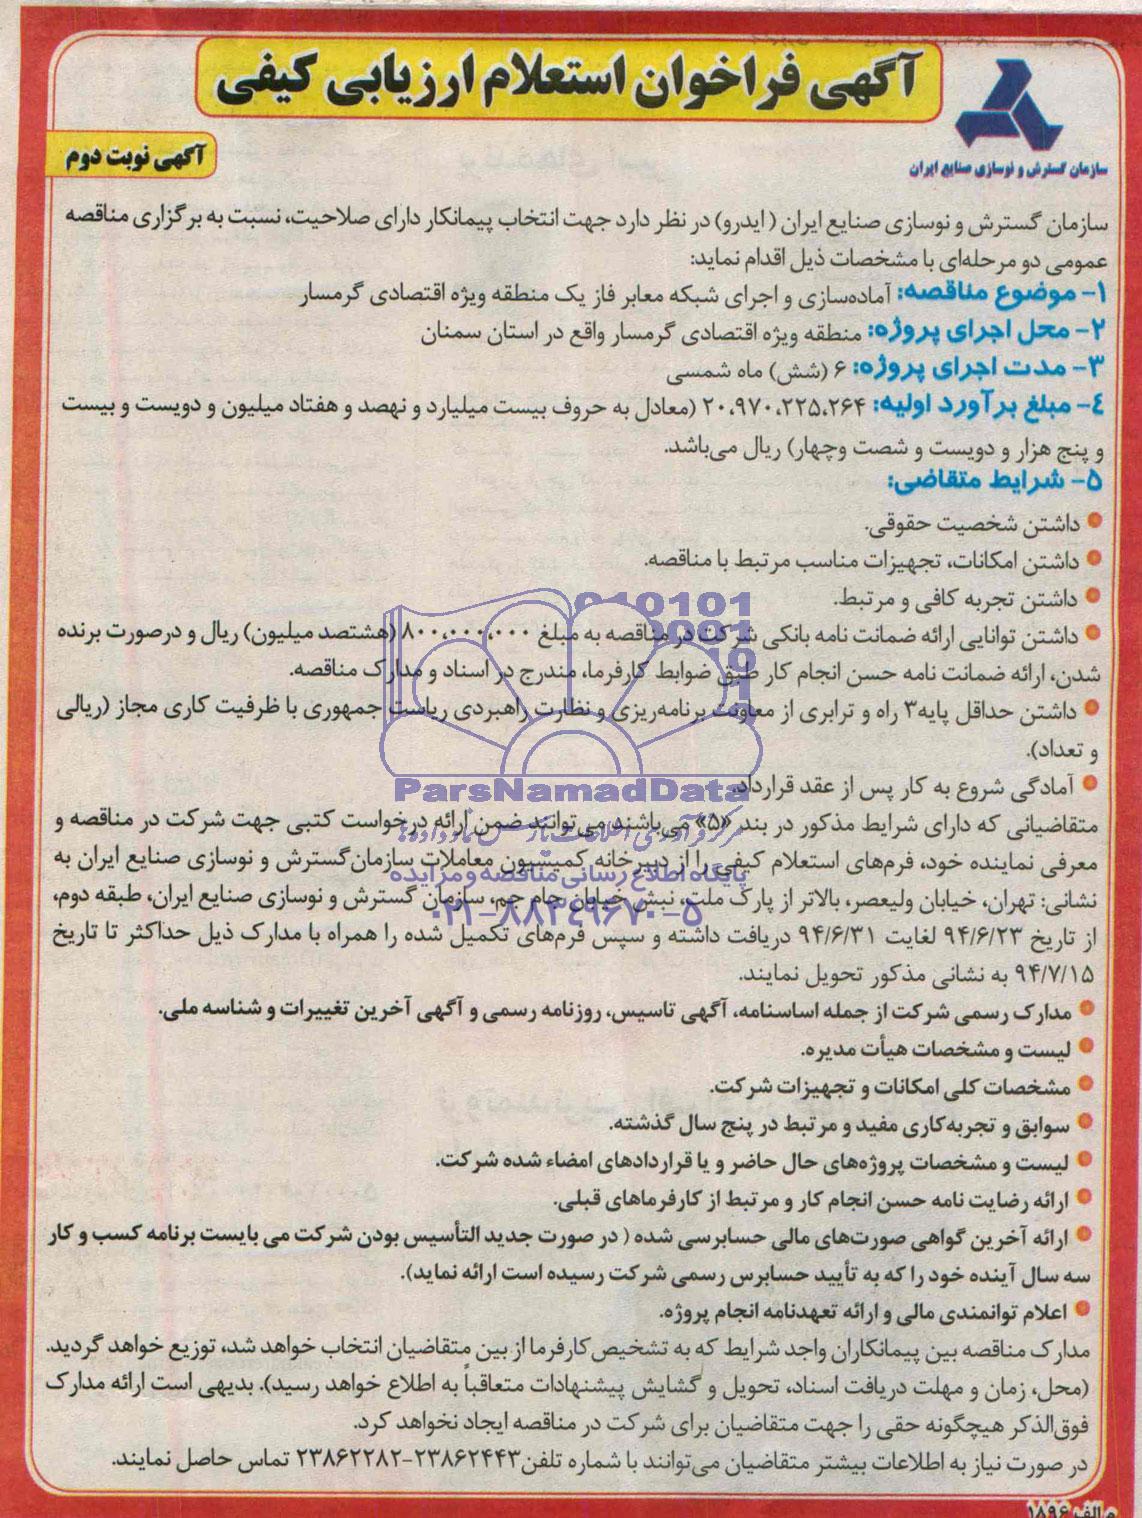 آگهی فراخوان استعلام ارزیابی کیفی
سازمان گسترش و نوسازی صنایع ایران
آگهی نوبت دوم
سازمان گسترش و نوسازی صنایع ایران (ایدرو) در نظر دارد جهت انتخاب پیمانکار دارای صلاحیت، نسبت به برگزاری مناقصه
عمومی دو مرحله‌ای با مشخصات ذیل اقدام نماید:
۱- موضوع مناقصه: آماده‌سازی و اجرای شبکه معابر فاز یک منطقه ویژه اقتصادی گرمسار
۲- محل اجرای پروژه: منطقه ویژه اقتصادی گرمسار واقع در استان سمنان
۳- مدت اجرای پروژه: ۶ (شش) ماه شمسی
۴- مبلغ برآورد اولیه: ۲۰،۹۷۰،۲۲۵،۲۶۴ (معادل به حروف بیست میلیارد و نهصد و هفتاد میلیون و دویست و بیست
و پنج هزار و دویست و شصت وچهار) ریال می‌باشد.
۵- شرایط متقاضی:
● داشتن شخصیت حقوقی.
● داشتن امکانات، تجهیزات مناسب مرتبط با مناقصه.
● داشتن تجربه کافی و مرتبط.
● داشتن توانایی ارائه ضمانت نامه بانکی شرکت در مناقصه به مبلغ ۸۰۰،۰۰۰،۰۰۰ (هشتصد میلیون) ریال و درصورت برنده
شدن، ارائه ضمانت نامه حسن انجام کار طبق ضوابط کارفرما، مندرج در اسناد و مدارک مناقصه.
● داشتن حداقل پایه۳ راه و ترابری از معاونت برنامه‌ریزی و نظارت راهبردی ریاست جمهوری با ظرفیت کاری مجاز (ریالی
و تعداد).
● آمادگی شروع به کار پس از عقد قرارداد.
ParsNamadData
متقاضیانی که دارای شرایط مذکور در بند «۵» می‌باشند می‌توانند ضمن ارائه درخواست کتبی جهت شرکت در مناقصه و
معرفی نماینده خود، فرم‌های استعلام کیفی را از دبیرخانه کمیسیون معاملات سازمان‌گسترش و نوسازی صنایع ایران به
پایگاه اطلاع رسانی مناقصه و مزایده
نشانی: تهران، خیابان ولیعصر، بالاتر از پارک ملت، نبش خیابان جام جم، سازمان گسترش و نوسازی صنایع ایران، طبقه دوم،
۰۲۱-۸۸۳۴۹۶۷۰-۵
از تاریخ ۹۴/۶/۲۳ لغایت ۹۴/۶/۳۱ دریافت داشته و سپس فرم‌های تکمیل شده را همراه با مدارک ذیل حداکثر تا تاریخ
۹۴/۷/۱۵ به نشانی مذکور تحویل نمایند.
● مدارک رسمی شرکت از جمله اساسنامه، آگهی تاسیس، روزنامه رسمی و آگهی آخرین تغییرات و شناسه ملی.
● لیست و مشخصات هیأت مدیره.
● مشخصات کلی امکانات و تجهیزات شرکت.
● سوابق و تجربه‌کاری مفید و مرتبط در پنج سال گذشته.
● لیست و مشخصات پروژه‌های حال حاضر و یا قراردادهای امضاء شده شرکت.
● ارائه رضایت نامه حسن انجام کار و مرتبط از کارفرماهای قبلی.
● ارائه آخرین گواهی صورت‌های مالی حسابرسی شده (در صورت جدید التأسیس بودن شرکت می بایست برنامه کسب و کار
سه سال آینده خود را که به تأیید حسابرس رسمی شرکت رسیده است ارائه نماید).
● اعلام توانمندی مالی و ارائه تعهدنامه انجام پروژه.
مدارک مناقصه بین پیمانکاران واجد شرایط که به تشخیص‌کارفرما از بین متقاضیان انتخاب خواهد شد، توزیع خواهد گردید.
(محل، زمان و مهلت دریافت اسناد، تحویل و گشایش پیشنهادات متعاقباً به اطلاع خواهد رسید). بدیهی است ارائه مدارک
فوق‌الذکر هیچگونه حقی را جهت متقاضیان برای شرکت در مناقصه ایجاد نخواهد کرد.
در صورت نیاز به اطلاعات بیشتر متقاضیان می‌توانند با شماره تلفن۲۳۸۶۲۴۴۳-۲۳۸۶۲۲۸۲ تماس حاصل نمایند.
م الف ۱۸۹۶